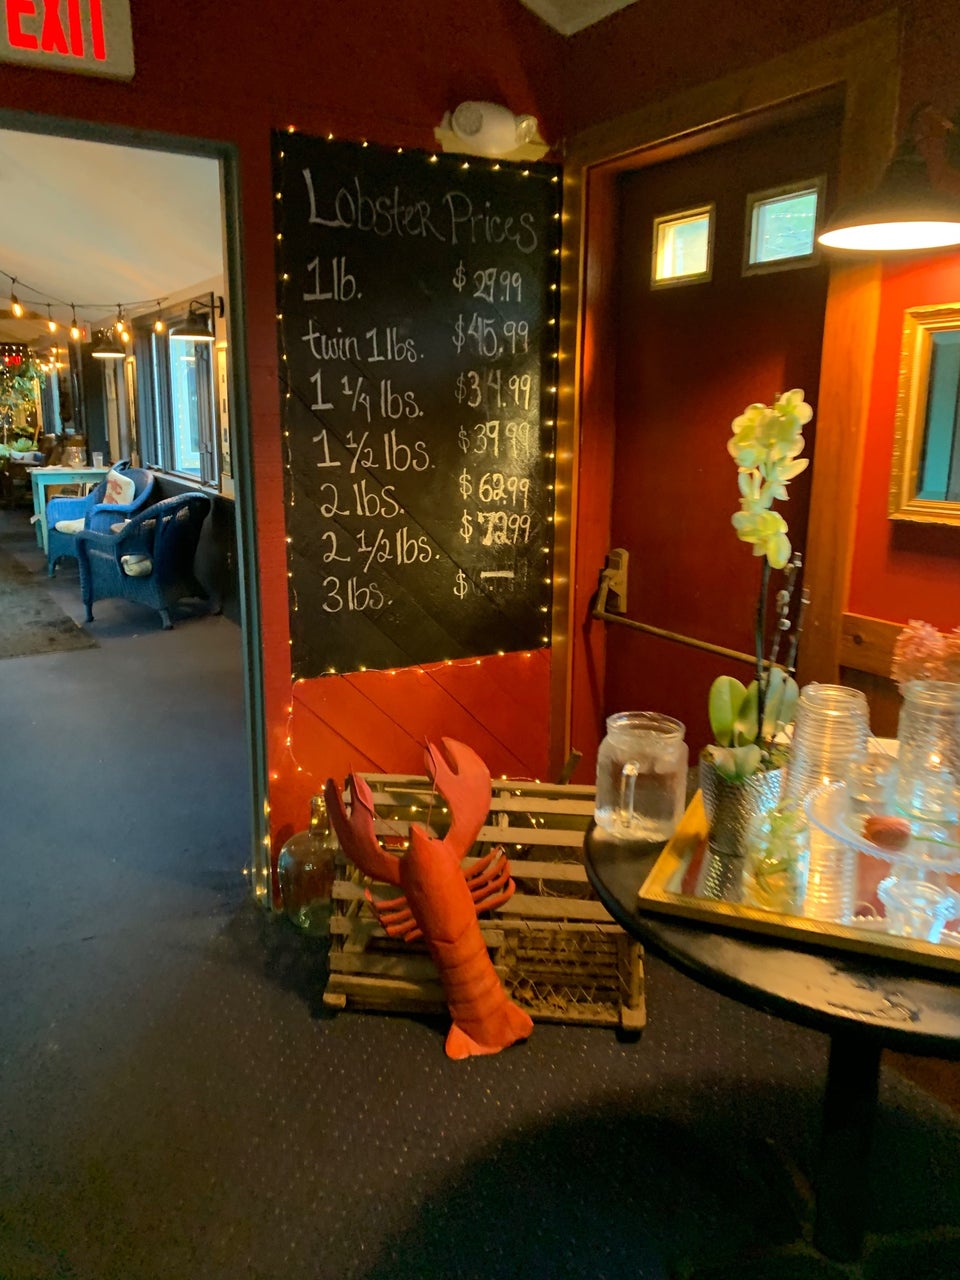 EXIT
Lobster Prices
1 lb. $29.99
twin 1 lbs. $45.99
1 1/4 lbs. $34.99
1 1/2 lbs. $39.99
2 lbs. $62.99
2 1/2 lbs. $72.99
3 lbs. $ —